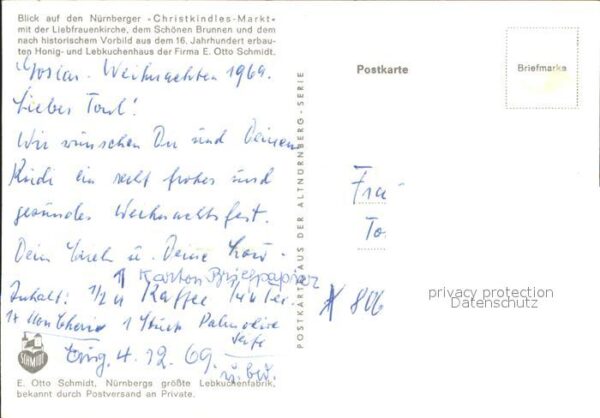 Blick auf den Nürnberger »Christkindles-Markt«
mit der Liebfrauenkirche, dem Schönen Brunnen und dem
nach historischem Vorbild aus dem 16. Jahrhundert erbau-
ten Honig- und Lebkuchenhaus der Firma E. Otto Schmidt.
Weihnachten 1969.
Liebes
Wir wünschen Du und Deinem
ein recht frohes und
gesundes Weihnachtsfest.
Dein u. Deine
1 Karton Briefpapier
Inhalt: 1/2 Kaffee
1x Mon Cherie 1 Stück Palmolive
Seife
Eing. 4.12.69.
SCHMIDT
E. Otto Schmidt, Nürnbergs größte Lebkuchenfabrik,
bekannt durch Postversand an Private.
POSTKARTE AUS DER ALTNÜRNBERG-SERIE
Postkarte
Briefmarke
Frau
To
806
privacy protection
Datenschutz